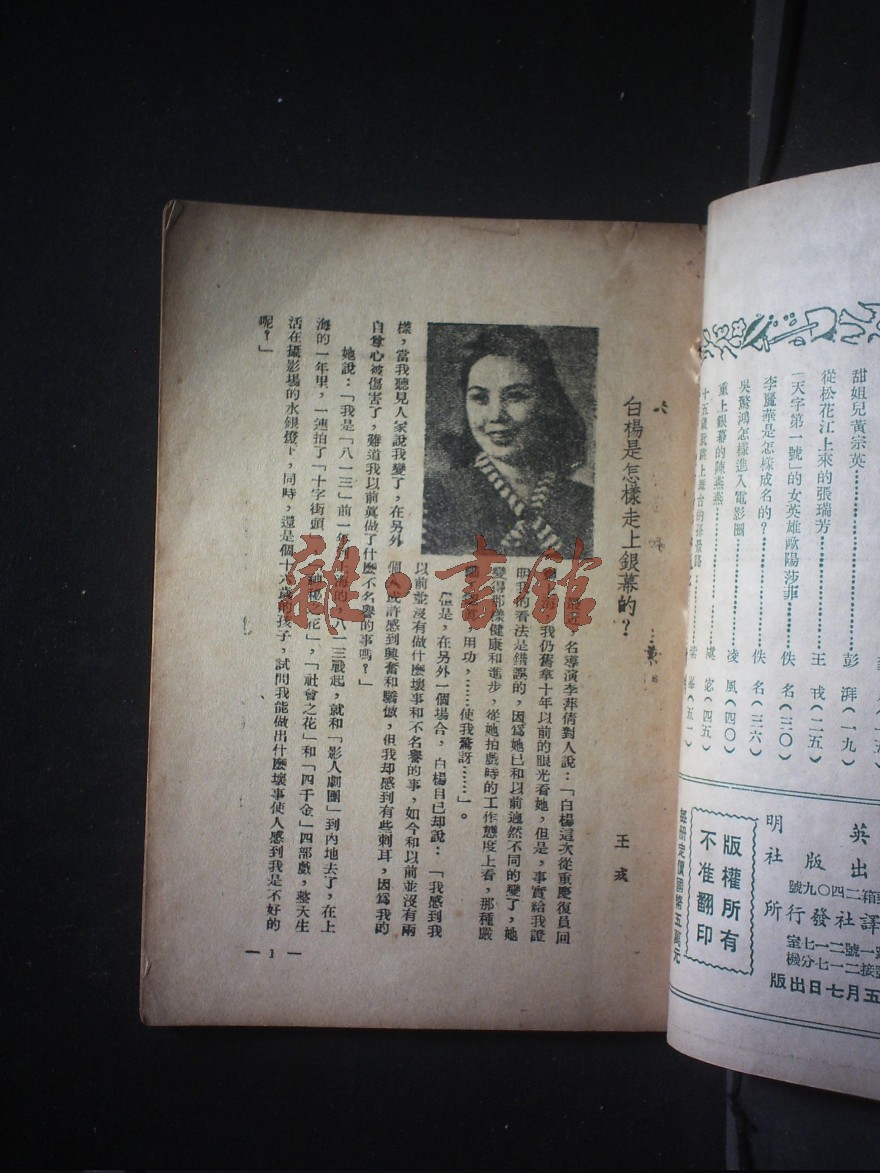 甜姐兒黃宗英……………彭湃(一九
從松花江上來的張瑞芳…………王戎(二五
「天字第一號」的女英雄歐陽莎菲……佚名(三〇
李麗華是怎樣成名的?……………佚名(三六
吳驚鴻怎樣進入電影圈……………凌風(四〇
重上銀幕的陳燕燕……………虞宓(四五
版權所有
不准翻印
每冊定價國幣五萬元
英出
版
明社
所
行發社譯
號九〇四二箱
室七一二號一
機分七一二接
版出日七月五
白楊是怎樣走上銀幕的?
王戎
最近,名導演李萍倩對人說:「白楊這次從重慶復員回
我仍舊拿十年以前的眼光看她,但是,事實給我證
明我的看法是錯誤的,因爲她已和以前迥然不同的變了,她
變得那樣健康和進步,從她拍戲時的工作態度上看,那種嚴
用功,……使我驚訝……」。
但是,在另外一個場合,白楊自己却說:「我感到我
以前並沒有做什麼壞事和不名譽的事,如今和以前並沒有兩
樣,當我聽見人家說我變了,在另外個人或許感到興奮和驕傲,但我却感到有些刺耳,因爲我的
自尊心被傷害了,難道我以前眞做了什麼不名譽的事嗎?」
她說:「我是「八一三」前一年到上海的,八一三戰起,就和「影人劇團」到內地去了,在上
海的一年里,一連拍了「十字街頭」,「神秘之花」,「社會之花」和「四千金」四部戲,整天生
活在攝影場的水銀燈下,同時,還是個十六歲的孩子,試問我能做出什麼壞事使人感到我是不好的
呢?」
— 1 —
雜·書館